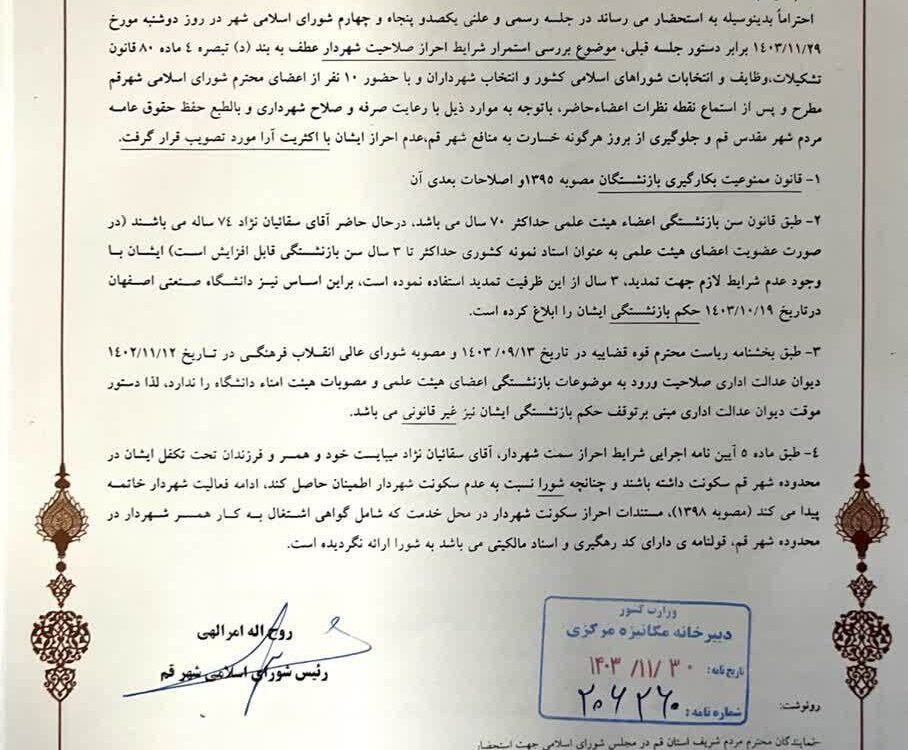 احتراماً بدینوسیله به استحضار می رساند در جلسه رسمی و علنی یکصدو پنجاه و چهارم شورای اسلامی شهر در روز دوشنبه مورخ
۱۴۰۳/۱۱/۲۹ برابر دستور جلسه قبلی، موضوع بررسی استمرار شرایط احراز صلاحیت شهردار عطف به بند (د) تبصره ۴ ماده ۸۰ قانون
تشکیلات،وظایف و انتخابات شوراهای اسلامی کشور و انتخاب شهرداران و با حضور ۱۰ نفر از اعضای محترم شورای اسلامی شهرقم
مطرح و پس از استماع نقطه نظرات اعضاءحاضر، باتوجه به موارد ذیل با رعایت صرفه و صلاح شهرداری و بالطبع حفظ حقوق عامه
مردم شهر مقدس قم و جلوگیری از بروز هرگونه خسارت به منافع شهر قم،عدم احراز ایشان با اکثریت آرا مورد تصویب قرار گرفت.
۱- قانون ممنوعیت بکارگیری بازنشستگان مصوبه ۱۳۹۵و اصلاحات بعدی آن
۲- طبق قانون سن بازنشستگی اعضاء هیئت علمی حداکثر ۷۰ سال می باشد، درحال حاضر آقای سقائیان نژاد ۷۴ ساله می باشند (در
صورت عضویت اعضای هیئت علمی به عنوان استاد نمونه کشوری حداکثر تا ۳ سال سن بازنشستگی قابل افزایش است) ایشان با
وجود عدم شرایط لازم جهت تمدید، ۳ سال از این ظرفیت تمدید استفاده نموده است، براین اساس نیز دانشگاه صنعتی اصفهان
درتاریخ ۱۴۰۳/۱۰/۱۹ حکم بازنشستگی ایشان را ابلاغ کرده است.
۳- طبق بخشنامه ریاست محترم قوه قضاییه در تاریخ ۱۴۰۳/۰۹/۱۳ و مصوبه شورای عالی انقلاب فرهنگی در تاریخ ۱۴۰۲/۱۱/۱۲
دیوان عدالت اداری صلاحیت ورود به موضوعات بازنشستگی اعضای هیئت علمی و مصوبات هیئت امناء دانشگاه را ندارد، لذا دستور
موقت دیوان عدالت اداری مبنی برتوقف حکم بازنشستگی ایشان نیز غیر قانونی می باشد.
۴- طبق ماده ۵ آیین نامه اجرایی شرایط احراز سمت شهردار، آقای سقائیان نژاد میبایست خود و همسر و فرزندان تحت تکفل ایشان در
محدوده شهر قم سکونت داشته باشند و چنانچه شورا نسبت به عدم سکونت شهردار اطمینان حاصل کند، ادامه فعالیت شهردار خاتمه
پیدا می کند (مصوبه ۱۳۹۸)، مستندات احراز سکونت شهردار در محل خدمت که شامل گواهی اشتغال به کار همسر شهردار در
محدوده شهر قم، قولنامه ی دارای کد رهگیری و اسناد مالکیتی می باشد به شورا ارائه نگردیده است.
روح اله امرالهی
رئیس شورای اسلامی شهر قم
وزارت کشور
دبیرخانه مکانیزه مرکزی
تاریخ نامه: ۱۴۰۳/۱۱/۳۰
شماره نامه: ۲۰۶۲۶۰
رونوشت:
-نمایندگان محترم مردم شریف استان قم در مجلس شورای اسلامی جهت استحضار